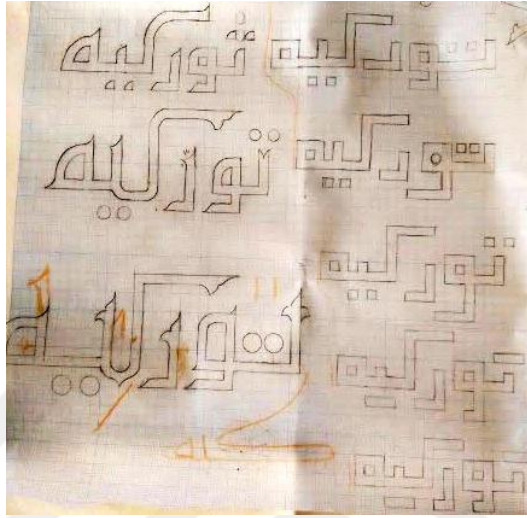 توركيه
توركيه
توركيه
توركيه
توركيه
توركيه
توركيه
توركيه